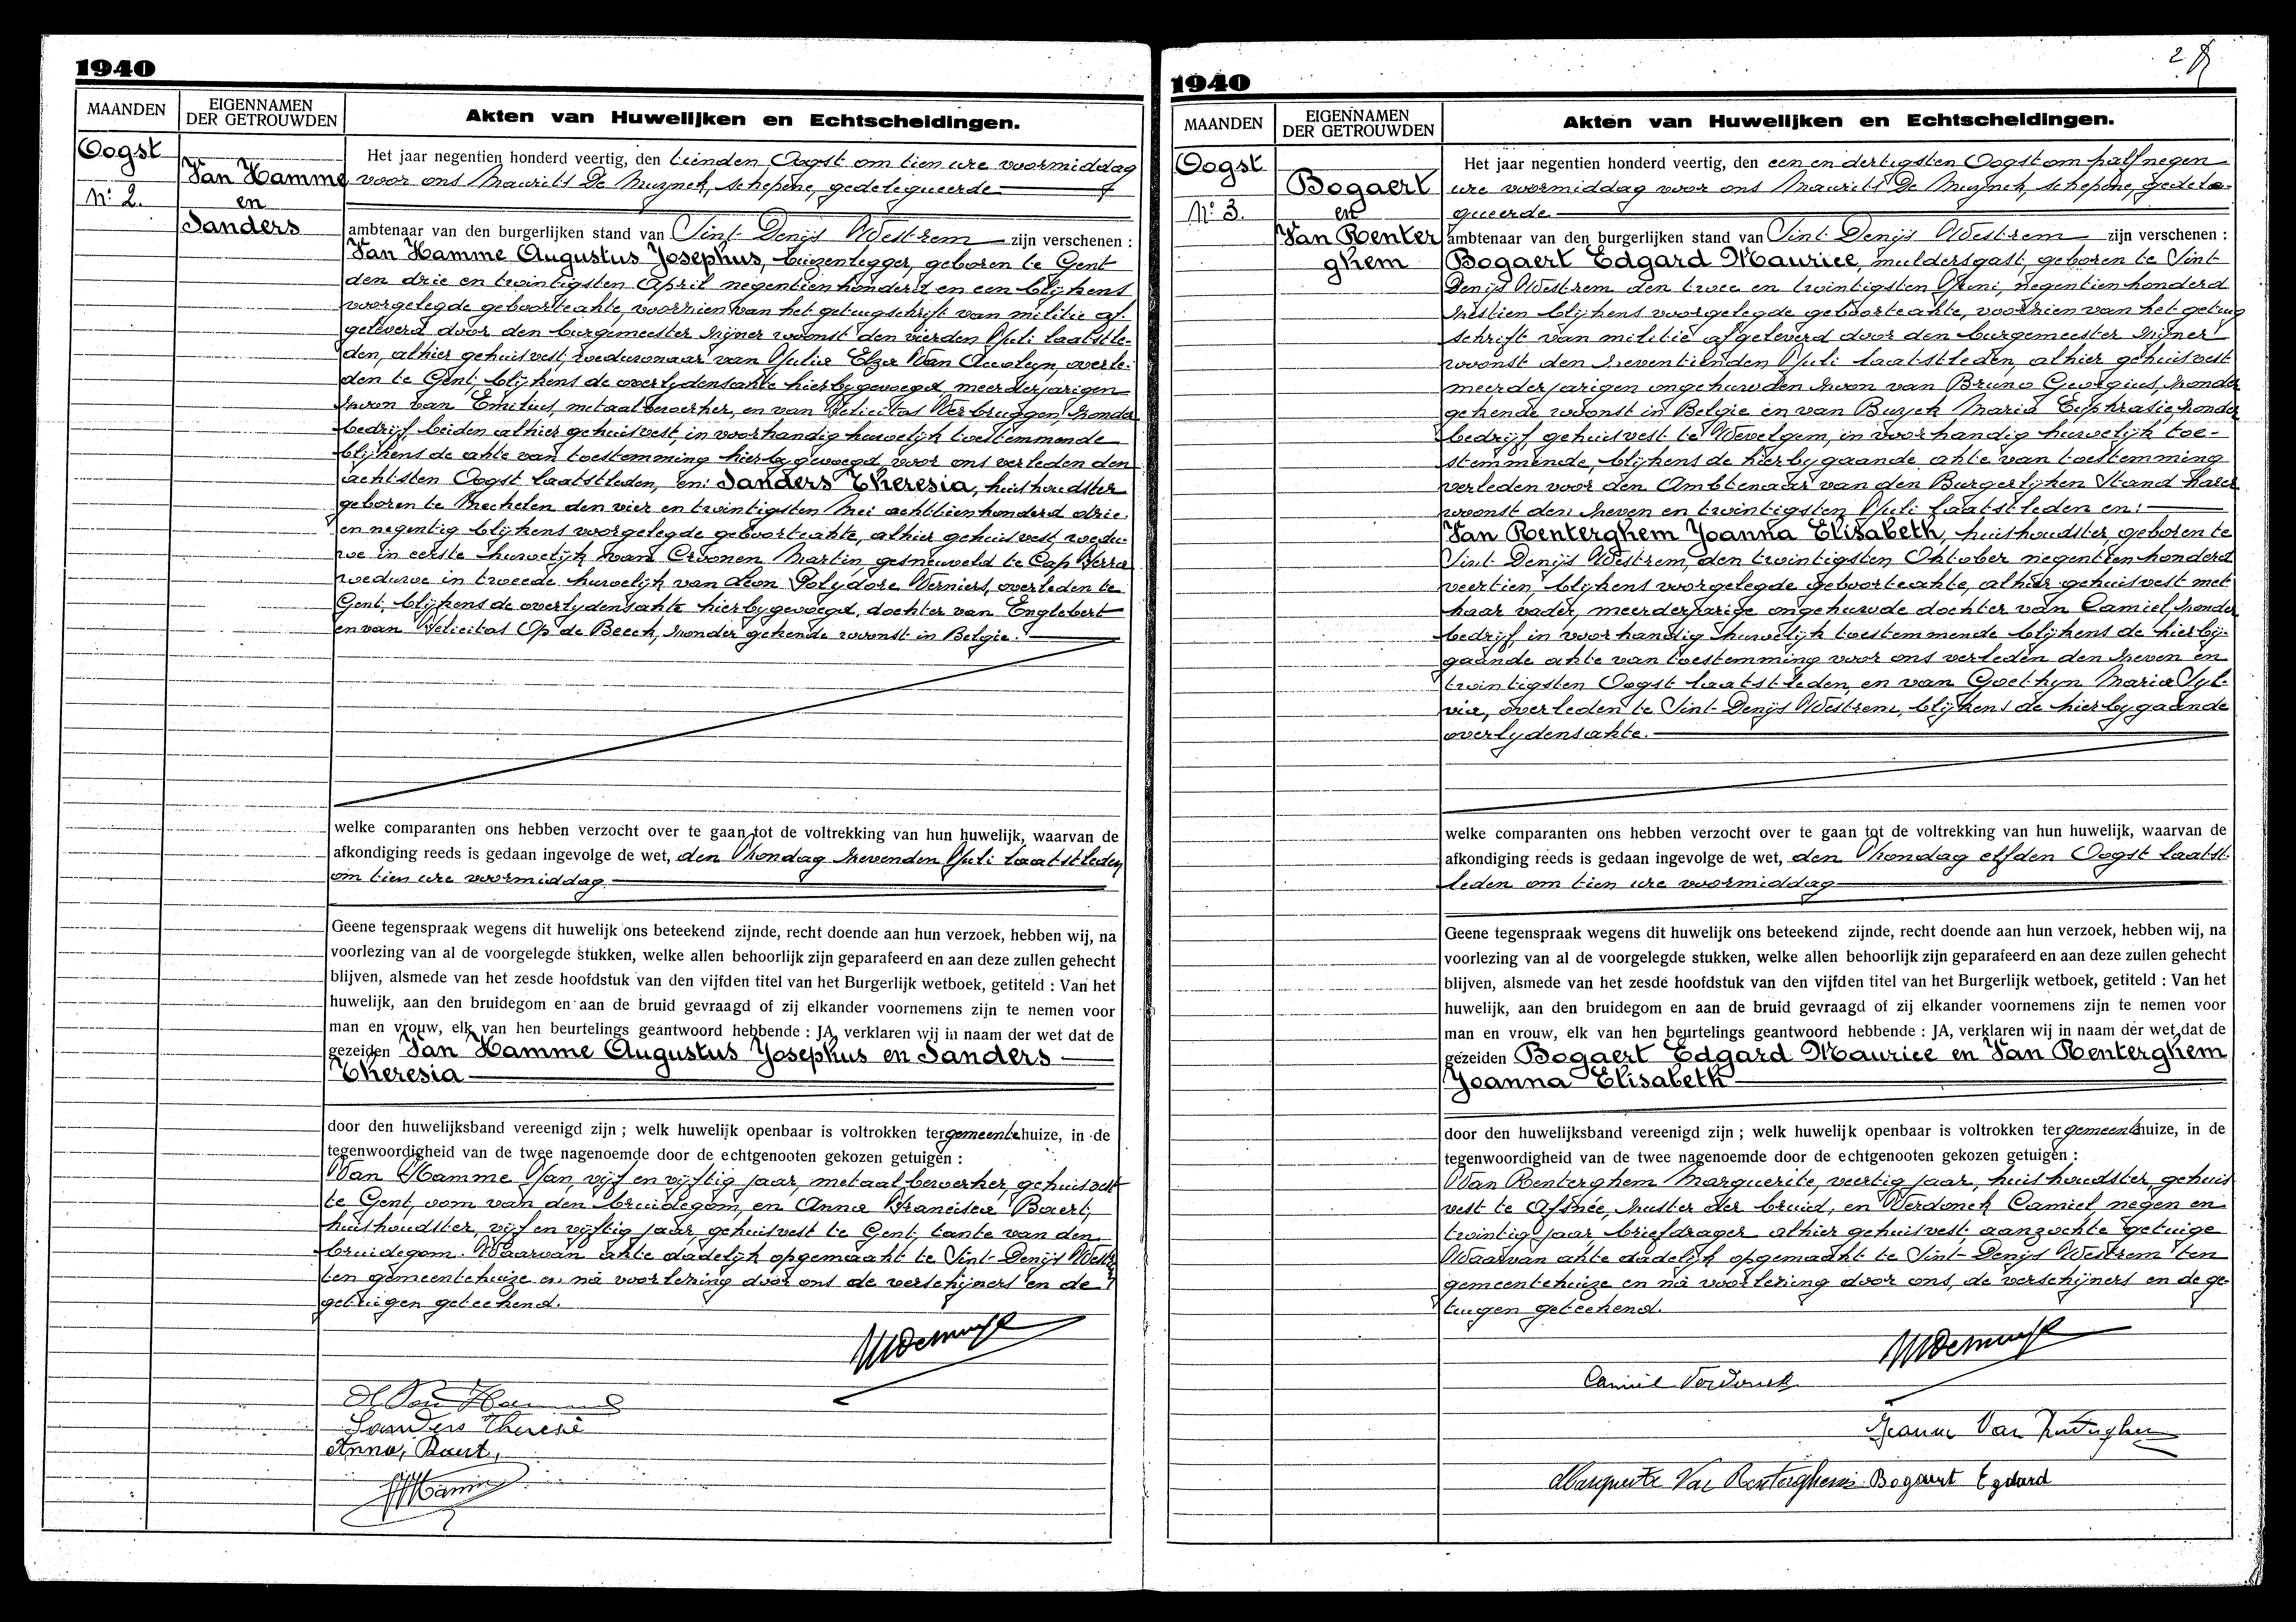 1940
MAANDEN
EIGENNAMEN
DER GETROUWDEN
Akten van Huwelijken en Echtscheidingen.
Oogst
Nº 2.
Van Hamme
en
Sanders
Het jaar negentien honderd veertig, den tienden Oogst om tien ure voormiddag
voor ons Maurits De Muynck, schepene, gedelegueerde
ambtenaar van den burgerlijken stand van Sint-Denijs Westrem zijn verschenen :
Van Hamme Augustus Josephus, buizenlegger, geboren te Gent
den drie en twintigsten April negentienhonderd en een blijkens
voorgelegde geboorteakte, voorzien van het getuigschrift van militie af-
geleverd door den burgemeester zijner woonst den vierden Juli laatstle-
den, alhier gehuisvest, weduwnaar van Julia Elza Van Accoleyn, overle-
den te Gent, blijkens de overlydensakte hierbygevoegd, meerderjarigen
zoon van Emilius, metaalbewerker, en van Felicitas Verbruggen, zonder
bedrijf, beiden alhier gehuisvest, in voorhandig huwelijk toestemmende
blijkens de akte van toestemming hierby gevoegd, voor ons verleden den
achtsten Oogst laatstleden, en: Sanders Theresia, huishoudster
geboren te Mechelen den vier en twintigsten Mei achttienhonderd drie
en negentig blijkens voorgelegde geboorteakte, alhier gehuisvest wedu-
we in eerste huwelijk van Croonen Martin, gesneuveld te Cap Ferra
weduwe in tweede huwelijk van Leon Polydore Verniers, overleden te
Gent, blijkens de overlydensakte hierbygevoegd, dochter van Englebert
en van Felicitas Op de Beeck, zonder gekende woonst in Belgie.
welke comparanten ons hebben verzocht over te gaan tot de voltrekking van hun huwelijk, waarvan de
afkondiging reeds is gedaan ingevolge de wet, den Zondag zevenden Juli laatstleden
om tien ure voormiddag
Geene tegenspraak wegens dit huwelijk ons beteekend zijnde, recht doende aan hun verzoek, hebben wij, na
voorlezing van al de voorgelegde stukken, welke allen behoorlijk zijn geparafeerd en aan deze zullen gehecht
blijven, alsmede van het zesde hoofdstuk van den vijfden titel van het Burgerlijk wetboek, getiteld : Van het
huwelijk, aan den bruidegom en aan de bruid gevraagd of zij elkander voornemens zijn te nemen voor
man en vrouw, elk van hen beurtelings geantwoord hebbende : JA, verklaren wij in naam der wet dat de
gezeiden Van Hamme Augustus Josephus en Sanders
Theresia
door den huwelijksband vereenigd zijn ; welk huwelijk openbaar is voltrokken ter gemeentehuize, in de
tegenwoordigheid van de twee nagenoemde door de echtgenooten gekozen getuigen :
Van Hamme Jan, vijf en vijftig jaar, metaalbewerker, gehuisvest
te Gent, oom van den bruidegom, en Anna Francisca Baert,
huishoudster, vijf en vijftig jaar, gehuisvest te Gent, tante van den
bruidegom. Waarvan akte dadelijk opgemaakt te Sint-Denijs Westr.
ten gemeentehuize en na voorlezing door ons de verschijners en de
getuigen geteekend.
Sanders Therese
Anna Baert,
1940
2
MAANDEN
EIGENNAMEN
DER GETROUWDEN
Akten van Huwelijken en Echtscheidingen.
Oogst
Nº 3.
Bogaert
en
Van Renter
ghem
Het jaar negentien honderd veertig, den een en dertigsten Oogst om half negen
ure voormiddag voor ons Maurits De Muynck, schepene, gedele-
gueerde
ambtenaar van den burgerlijken stand van Sint Denijs Westrem zijn verschenen :
Bogaert Edgard Maurice, muldersgast, geboren te Sint
Denijs Westrem den twee en twintigsten Juni, negentienhonderd
zestien blijkens voorgelegde geboorteakte, voorzien van het getuig
schrift van militie afgeleverd door den burgemeester zijner
woonst den zeventienden Juli laatstleden, alhier gehuisvest
meerderjarigen ongehuwden zoon van Bruno Georgius, zonder
gekende woonst in Belgie en van Buyck Maria Euphrasie, zonder
bedrijf, gehuisvest te Wevelgem, in voorhandig huwelijk toe-
stemmende, blijkens de hierbygaande akte van toestemming
verleden voor den Ambtenaar van den Burgerlijken Stand harer
woonst den zeven en twintigsten Juli laatstleden en:
Van Renterghem Joanna Elisabeth, huishoudster, geboren te
Sint Denijs Westrem, den twintigsten Oktober negentienhonderd
veertien, blijkens voorgelegde geboorteakte, alhier gehuisvest met
haar vader, meerderjarige ongehuwde dochter van Camiel, zonder
bedrijf, in voorhandig huwelijk toestemmende blijkens de hierbij-
gaande akte van toestemming voor ons verleden den zeven en
twintigsten Oogst laatstleden, en van Goethyn Maria Syl-
via, overleden te Sint-Denijs Westrem, blijkens de hierbygaande
overlydensakte.
welke comparanten ons hebben verzocht over te gaan tot de voltrekking van hun huwelijk, waarvan de
afkondiging reeds is gedaan ingevolge de wet, den Zondag elfden Oogst laatst-
leden om tien ure voormiddag
Geene tegenspraak wegens dit huwelijk ons beteekend zijnde, recht doende aan hun verzoek, hebben wij, na
voorlezing van al de voorgelegde stukken, welke allen behoorlijk zijn geparafeerd en aan deze zullen gehecht
blijven, alsmede van het zesde hoofdstuk van den vijfden titel van het Burgerlijk wetboek, getiteld : Van het
huwelijk, aan den bruidegom en aan de bruid gevraagd of zij elkander voornemens zijn te nemen voor
man en vrouw, elk van hen beurtelings geantwoord hebbende : JA, verklaren wij in naam der wet dat de
gezeiden Bogaert Edgard Maurice en Van Renterghem
Joanna Elisabeth
door den huwelijksband vereenigd zijn ; welk huwelijk openbaar is voltrokken ter gemeentehuize, in de
tegenwoordigheid van de twee nagenoemde door de echtgenooten gekozen getuigen :
Van Renterghem Marguerite, veertig jaar, huishoudster, gehuis
vest te Afsnée, zuster der bruid, en Verdonck Camiel negen en
twintig jaar, briefdrager alhier gehuisvest, aanzochte getuige
Waarvan akte dadelijk opgemaakt te Sint-Denijs Westrem ten
gemeentehuize en na voorlezing door ons, de verschijners en de ge-
tuigen geteekend.
Camiel Verdonck
Jeanne Van Renterghem
Marguerite Van Renterghem Bogaert Egdard